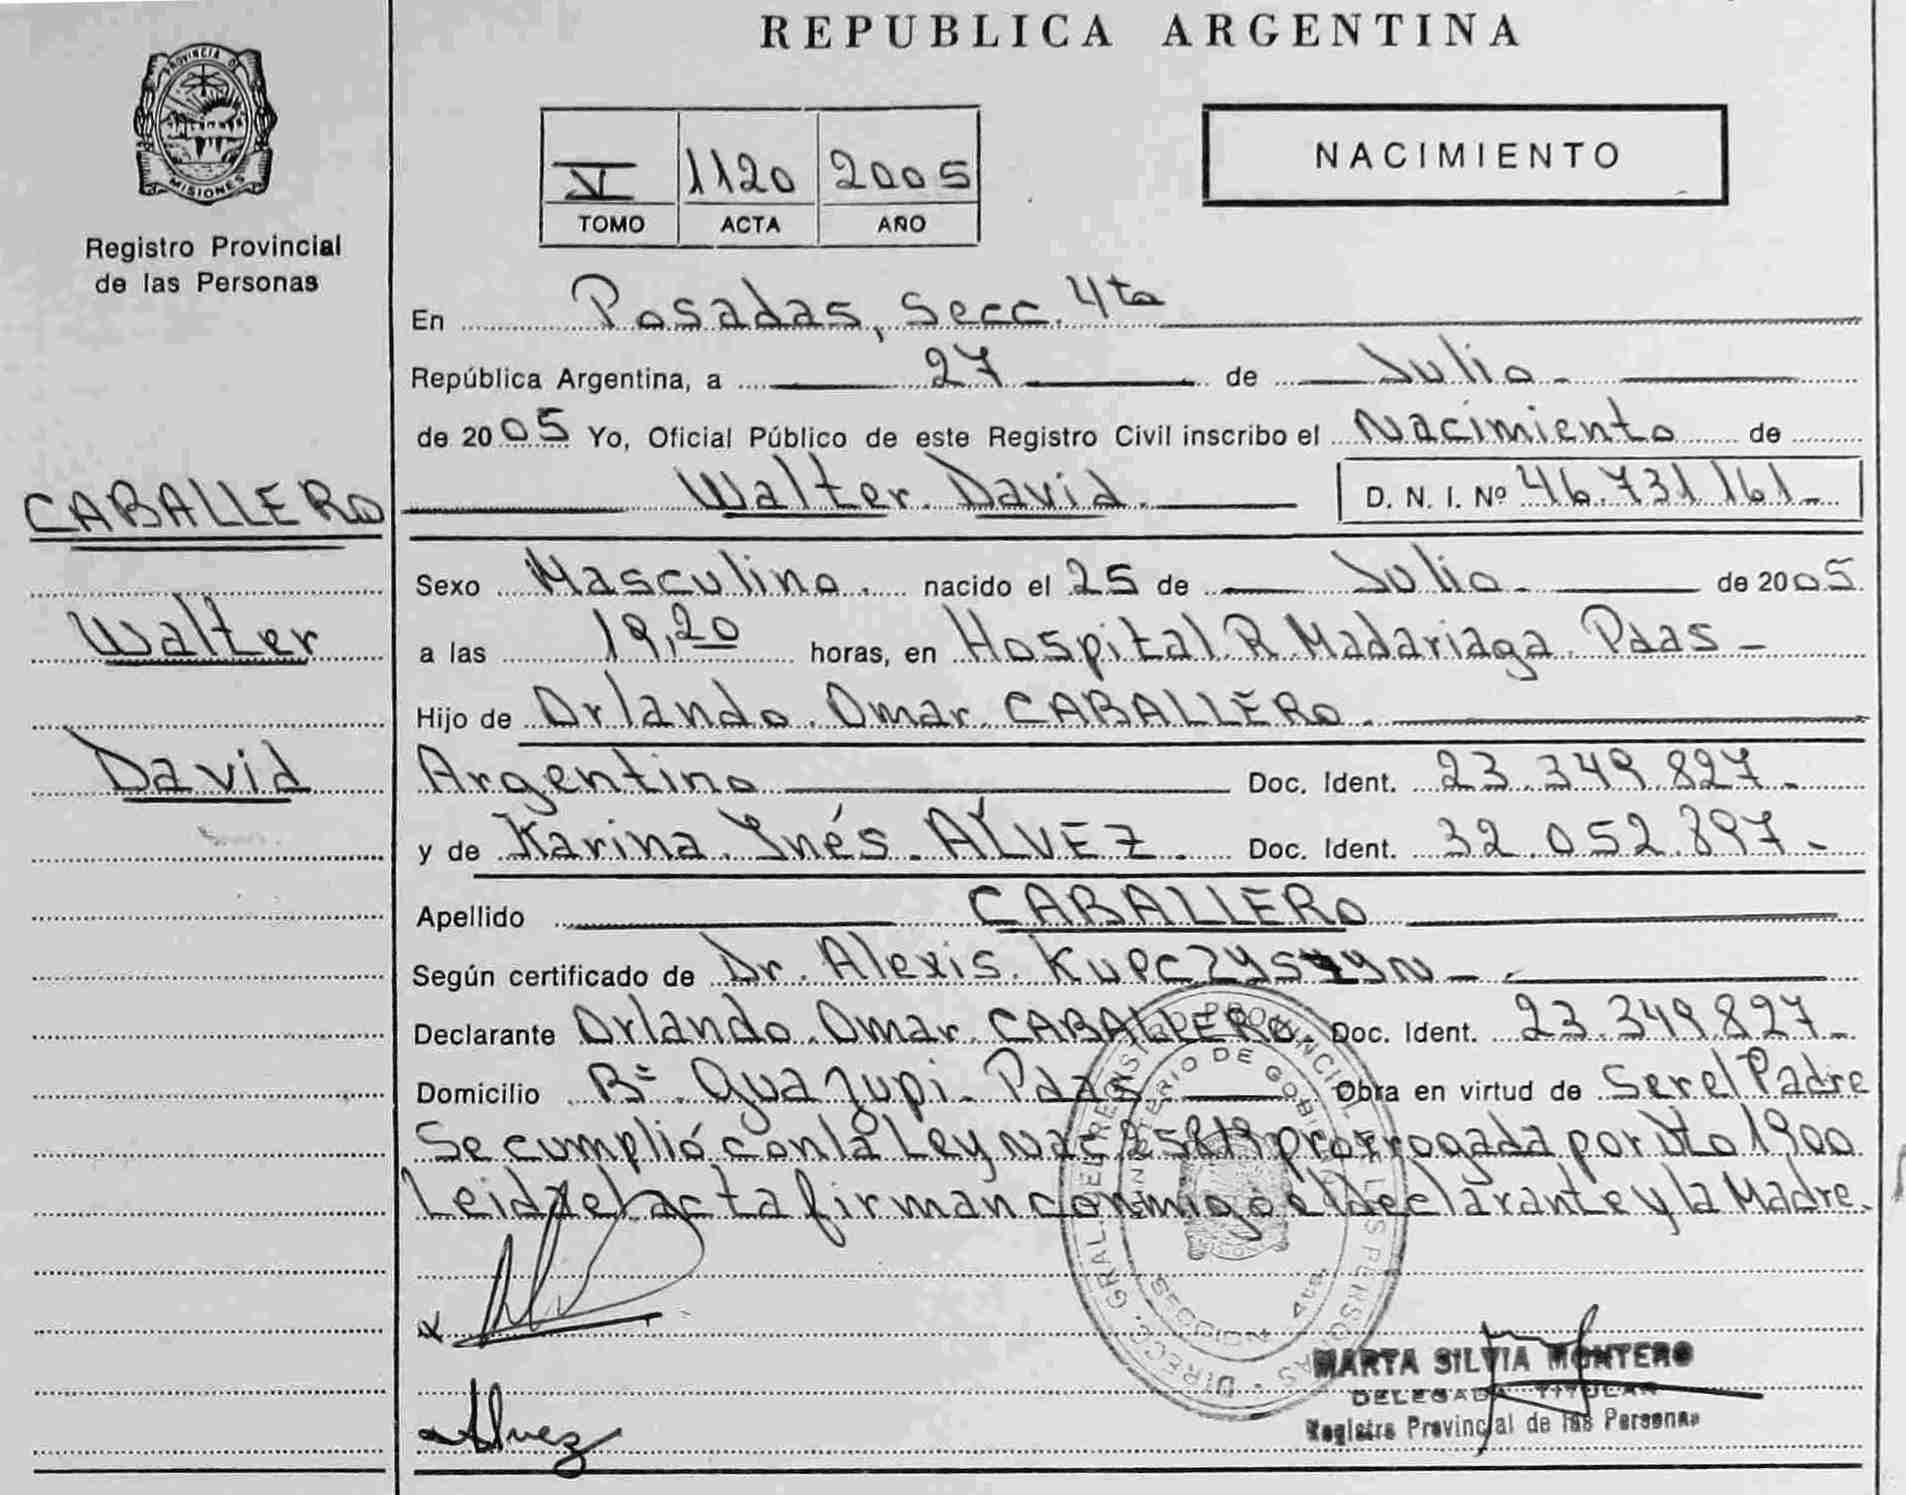 REPUBLICA ARGENTINA
PROVINCIA DE
MISIONES
Registro Provincial
de las Personas
V 1120 2005
TOMO ACTA AÑO
NACIMIENTO
En Posadas, Secc. 4ta
República Argentina, a 27 de Julio
de 2005 Yo, Oficial Público de este Registro Civil inscribo el Nacimiento de
CABALLERO
Walter David D. N. I. Nº 46.731.161-
Sexo Masculino nacido el 25 de Julio de 2005
Walter
a las 19,20 horas, en Hospital R Madariaga Pdas-
Hijo de Orlando Omar CABALLERO
David
Argentino Doc. Ident. 23.349.827-
y de Karina Inés ALVEZ Doc. Ident. 32.052.897-
Apellido CABALLERO
Según certificado de Dr. Alexis
Declarante Orlando Omar CABALLERO Doc. Ident. 23.349.827-
Domicilio Bº Guazupi- Pdas Obra en virtud de Ser el Padre
Se cumplió con la Ley Nac 25819 prorrogada por Dto 1900
Leida el acta firman conmigo el declarante y la Madre.
MARTA SILVIA MONTERO
DELEGADA TITULAR
Registro Provincial de las Personas
Alvez